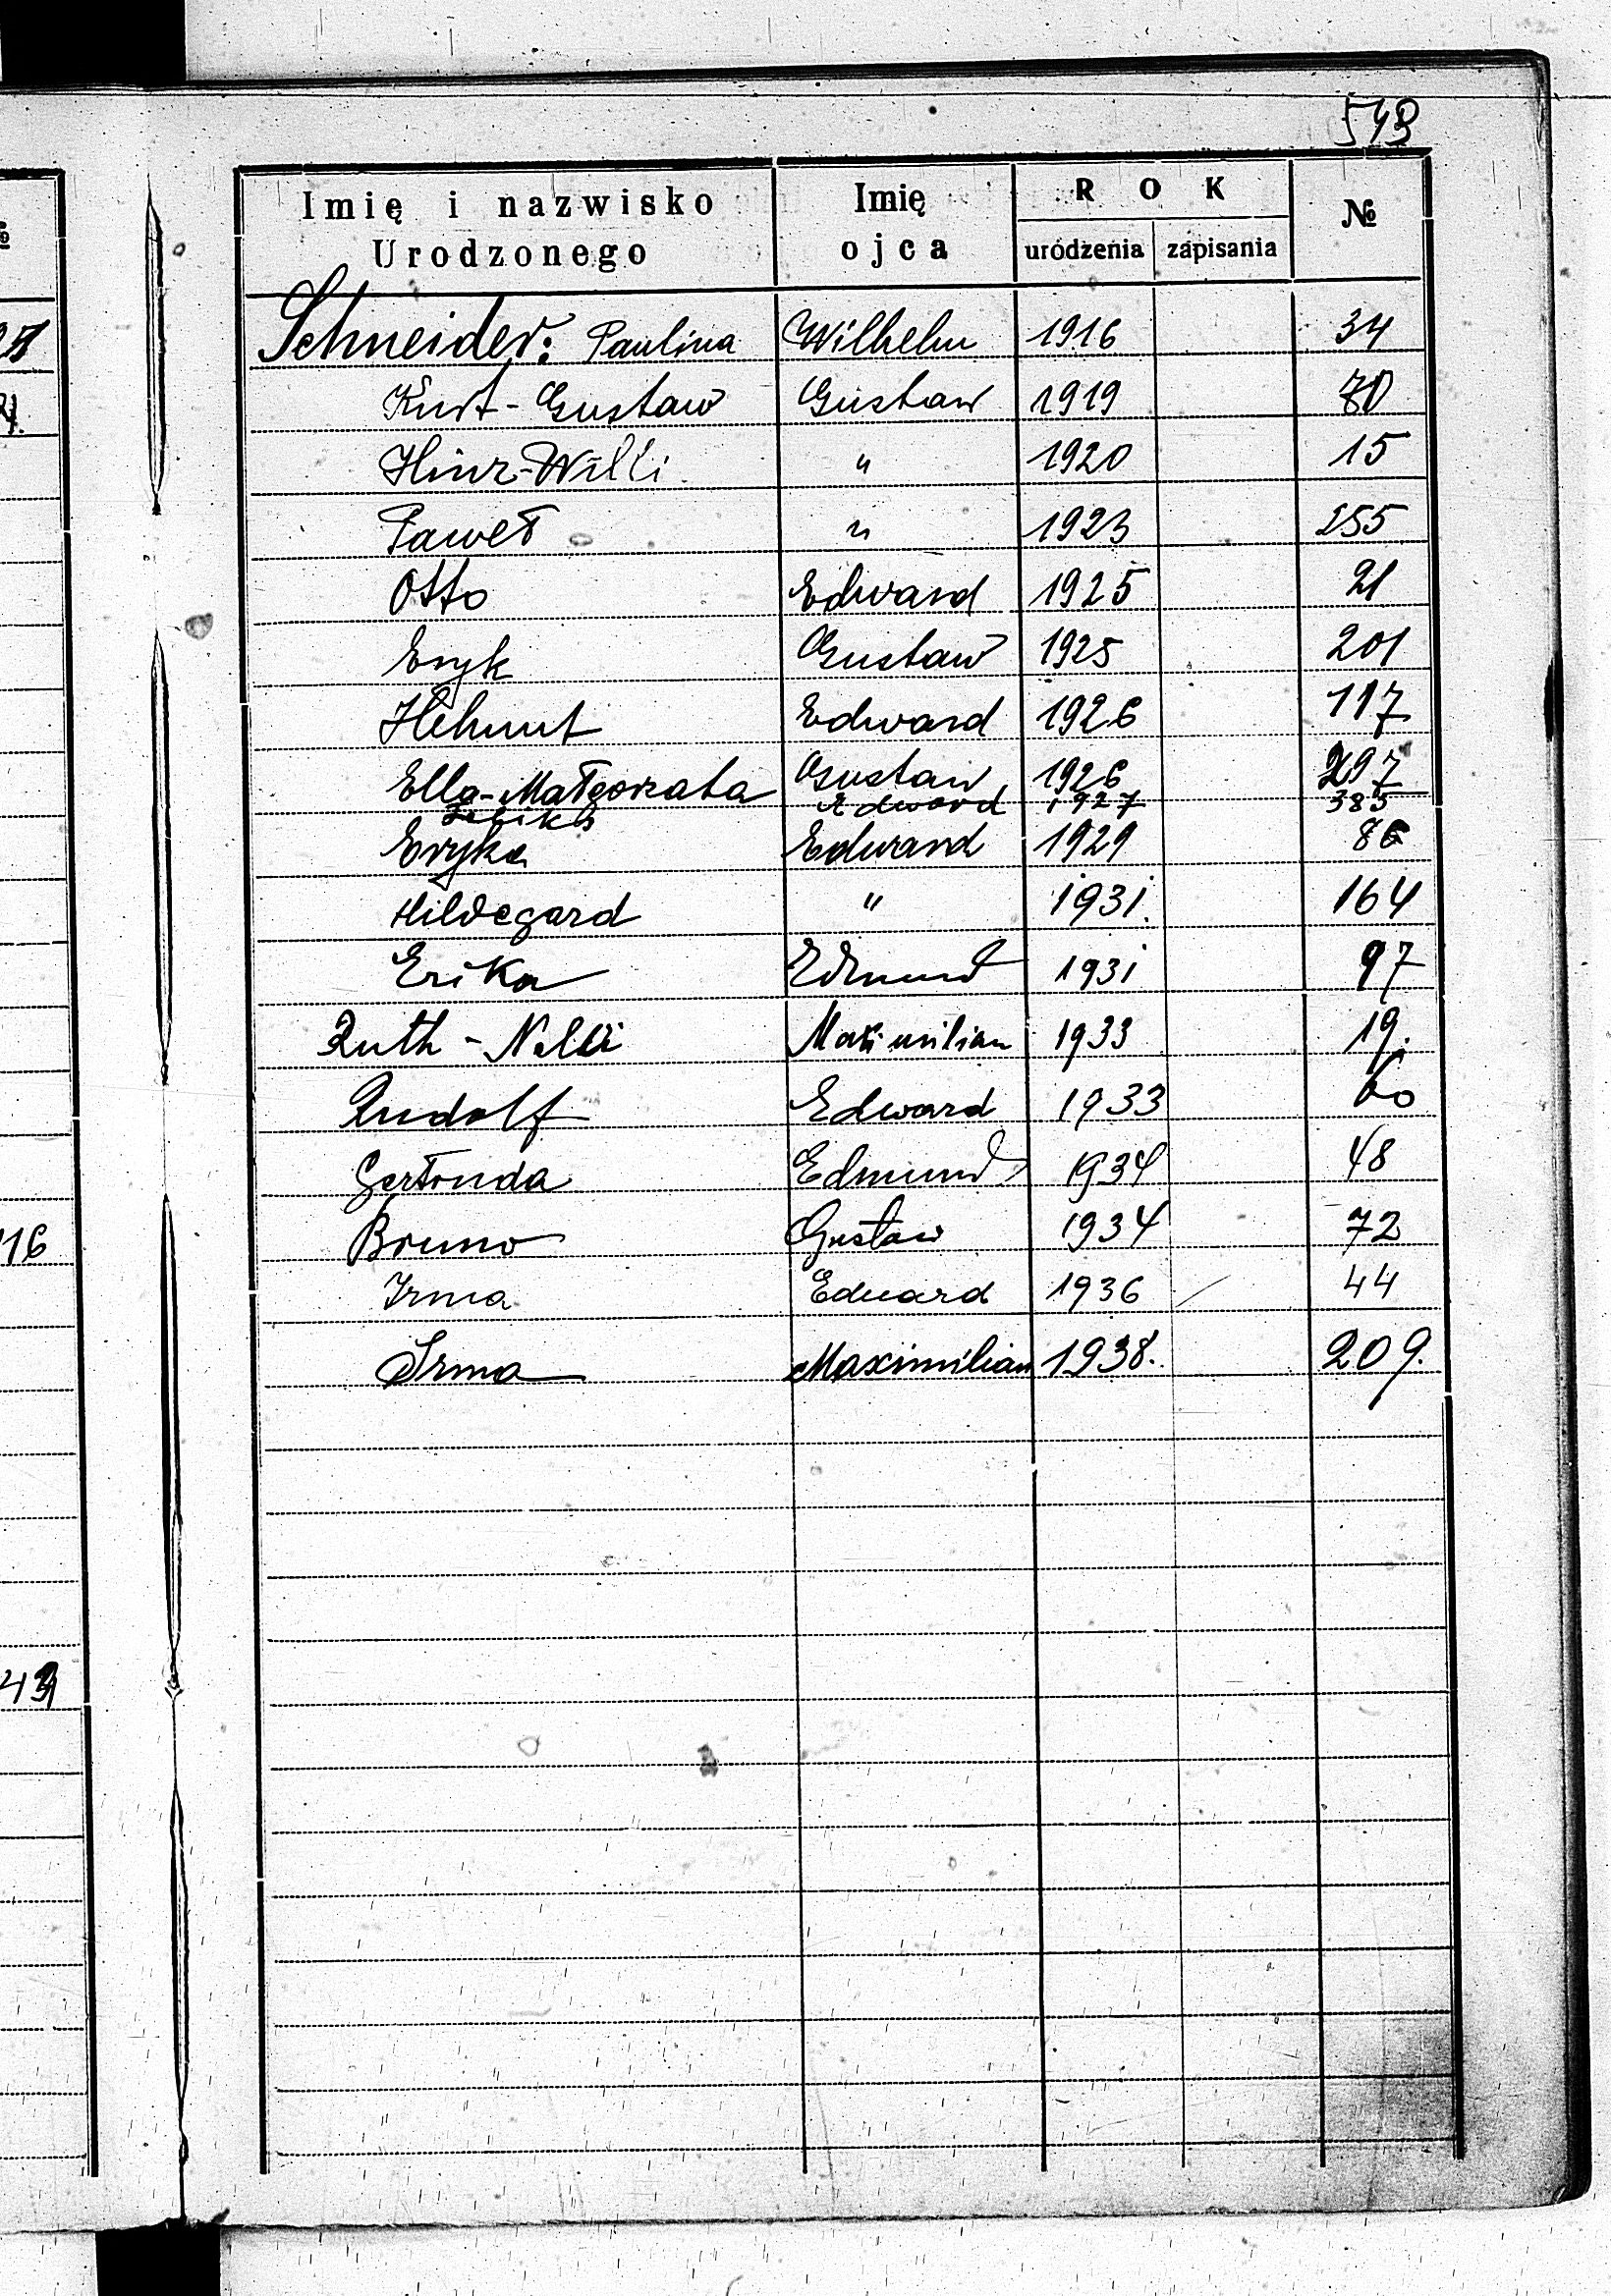 543
Imię i nazwisko Urodzonego Imię ojca ROK urodzenia zapisania №
Schneider: Paulina Wilhelm 1916 34
Kurt-Gustaw Gustaw 1919 70
Hinz-Willi " 1920 15
Paweł " 1923 255
Otto Edward 1925 21
Eryk Gustaw 1925 201
Helmut Edward 1926 117
Ella-Małgorzata Gustaw 1926 297
Edward 1927 385
Eryka Edward 1929 86
Hildegard " 1931. 164
Erika Edmund 1931 97
Ruth - Nelli Maksimilian 1933 19.
Rudolf Edward 1933 60
Gertruda Edmund 1934 48
Bruno Gustaw 1934 72
Irma Eduard 1936 44
Irma Maximilian 1938. 209.
16